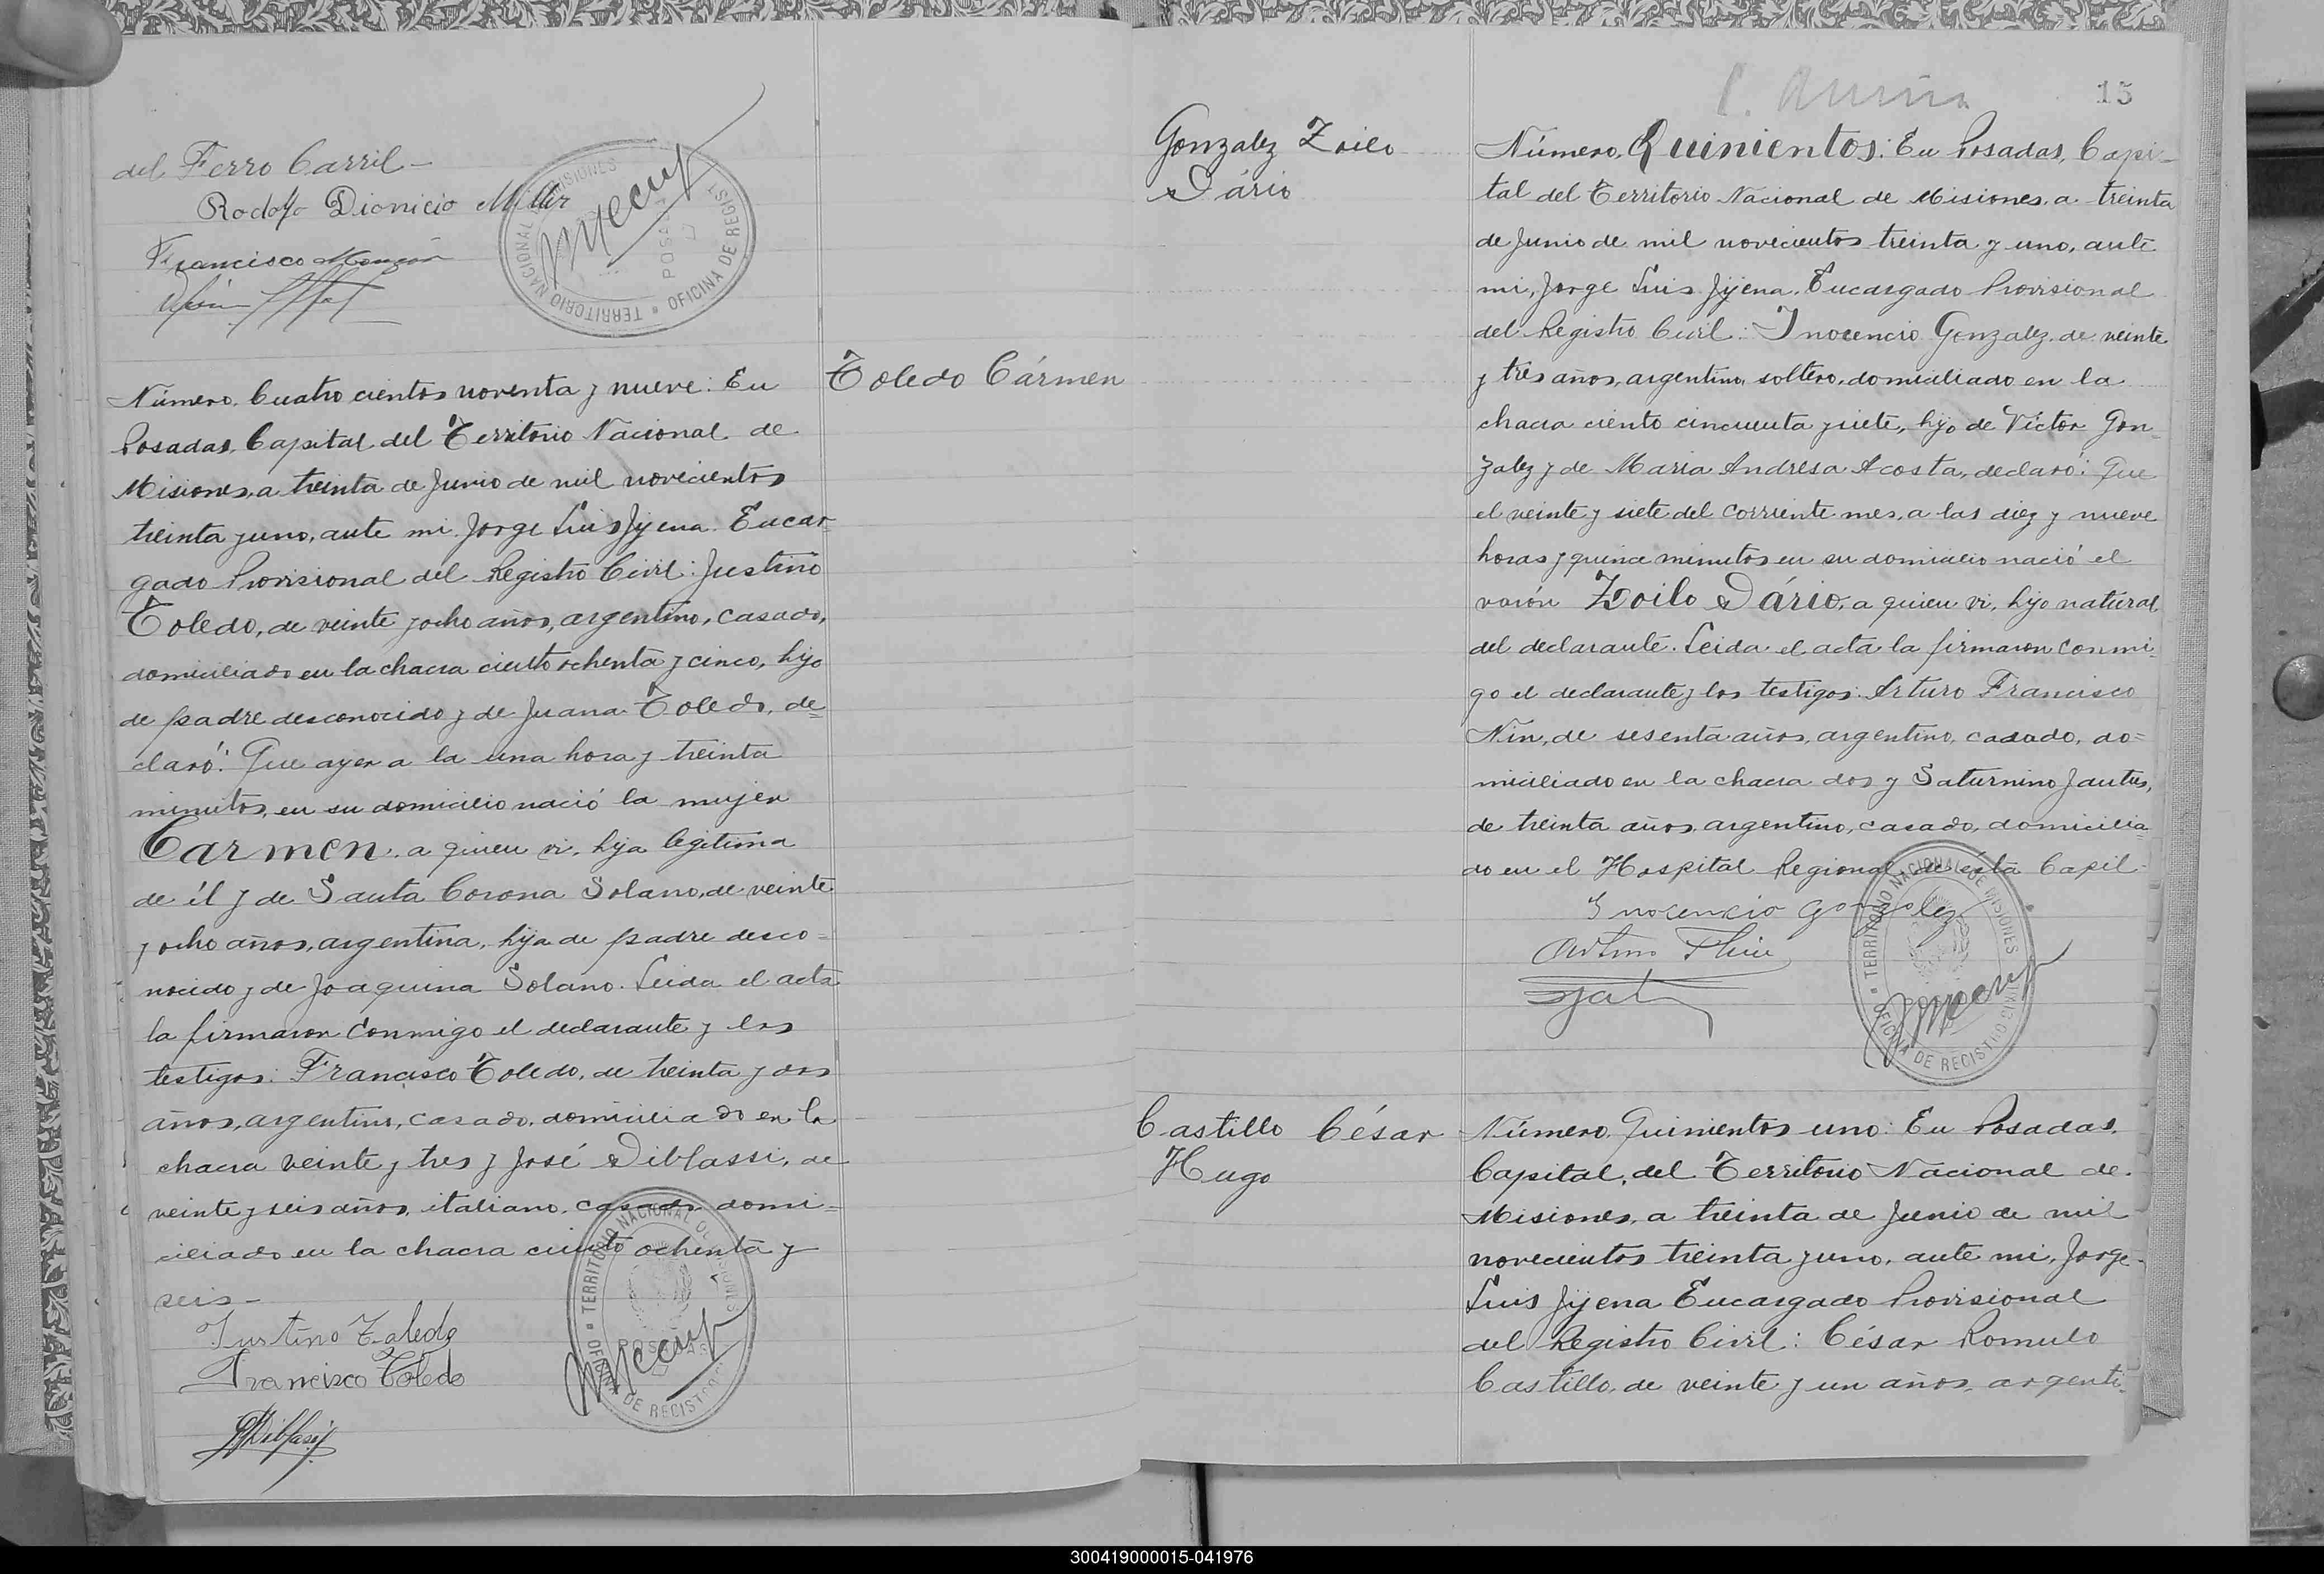 del Ferro Carril-
Rodolfo Dionicio Miller
Francisco
TERRITORIO NACIONAL DE MISIONES
OFICINA DE REGISTRO
POSADAS
Toledo Cármen
Número Cuatro cientos noventa y nueve: En
Posadas, Capital del Territorio Nacional de
Misiones, a treinta de Junio de mil novecientos
treinta y uno, ante mi Jorge Luis Jijena Encar-
gado Provisional del Registro Civil: Justino
Toledo, de veinte y ocho años, argentino, casado,
domiciliado en la chacra ciento ochenta y cinco, hijo
de padre desconocido y de Juana Toledo, de=
claró: Que ayer a la una hora y treinta
minutos, en su domicilio nació la mujer
Carmen, a quien vi, hija legitima
de él y de Santa Corona Solano, de veinte
y ocho años, argentina, hija de padre desco=
nocido y de Joaquina Solano. Leida el acta
la firmaron conmigo el declarante y los
testigos: Francisco Toledo, de treinta y dos
años, argentino, casado, domiciliado en la
chacra veinte y tres y José Diblassi, de
veinte y seis años, italiano, casado, domi=
ciliado en la chacra ciento ochenta y
seis-
Justino Toledo
Francisco Toledo
JDiblasi
TERRITORIO NACIONAL DE MISIONES
OFICINA DE REGISTRO
POSADAS
15
Gonzalez Zoilo
Dário
Número Quinientos: En Posadas, Capi-
tal del Territorio Nacional de Misiones, a treinta
de Junio de mil novecientos treinta y uno, ante
mi, Jorge Luis Jijena, Encargado Provisional
del Registro Civil: Inocencio Gonzalez, de veinte
y tres años, argentino, soltero, domiciliado en la
chacra ciento cincuenta y siete, hijo de Víctor Gon-
zalez y de Maria Andresa Acosta, declaró: Que
el veinte y siete del corriente mes, a las diez y nueve
horas y quince minutos en su domicilio nació el
varón Zoilo Dário, a quien vi, hijo natural
del declarante. Leida el acta la firmaron conmi-
go el declarante y los testigos: Arturo Francisco
Nin, de sesenta años, argentino, casado, do=
miciliado en la chacra dos y Saturnino Jantus,
de treinta años, argentino, casado, domicilia
do en el Hospital Regional de ésta Capil-
Inocencio Gonzalez
Arturo F Nin
TERRITORIO NACIONAL DE MISIONES
OFICINA DE REGISTRO CIVIL
POSADAS
Castillo César
Hugo
Número Quinientos uno: En Posadas,
Capital, del Territorio Nacional de
Misiones, a treinta de Junio de mil
novecientos treinta y uno, ante mi, Jorge
Luis Jijena Encargado Provisional
del Registro Civil: César Romulo
Castillo, de veinte y un años, argenti-
300419000015-041976